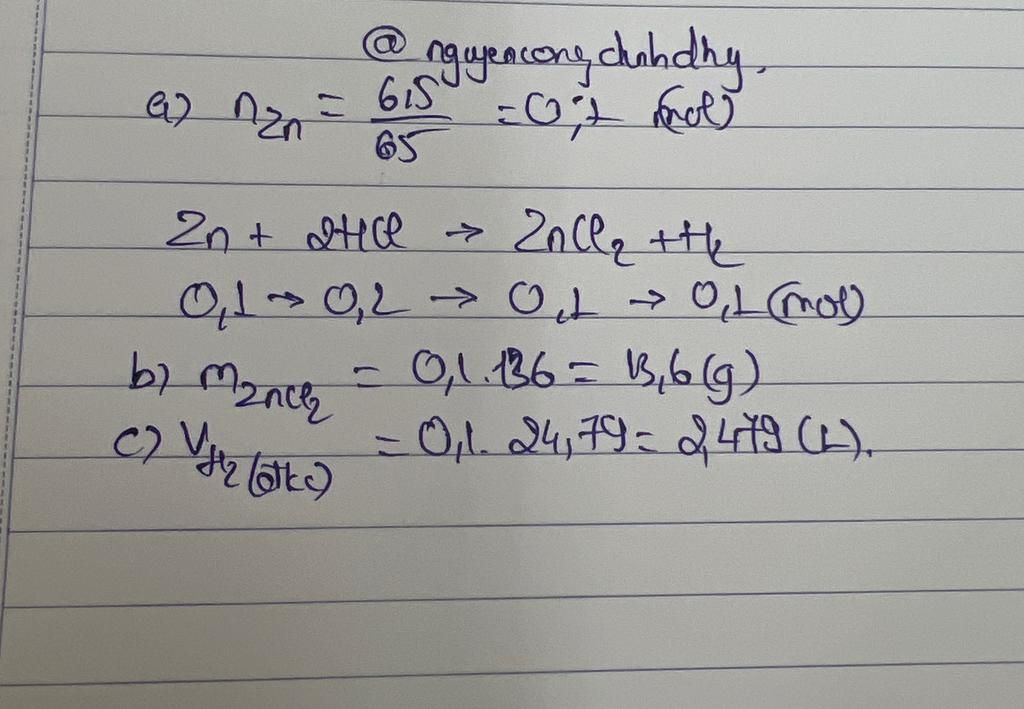 @ nguyencongchnhdhy.
a) n Zn = 6,5 / 65 = 0,1 (mol)
Zn + 2HCl → ZnCl2 + H2
0,1 → 0,2 → 0,1 → 0,1 (mol)
b) m ZnCl2 = 0,1.136 = 13,6 (g)
c) V H2 (đkc) = 0,1. 24,79 = 2,479 (L).